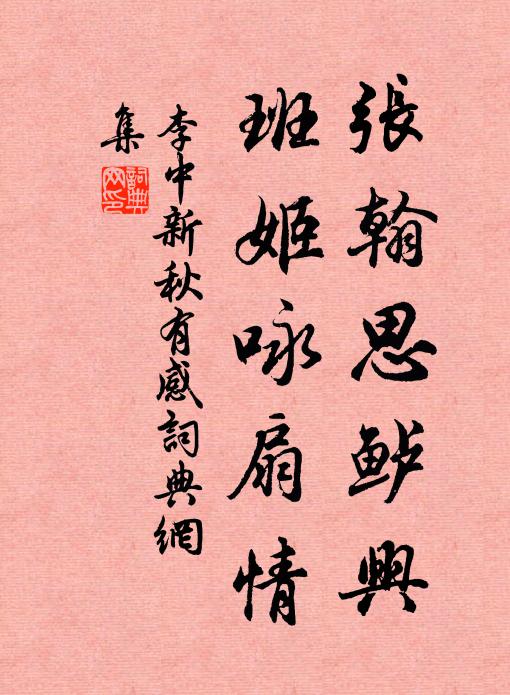 張翰思鲈興
班姬咏扇情
李中新秋有感詞典網
集
詞典網印